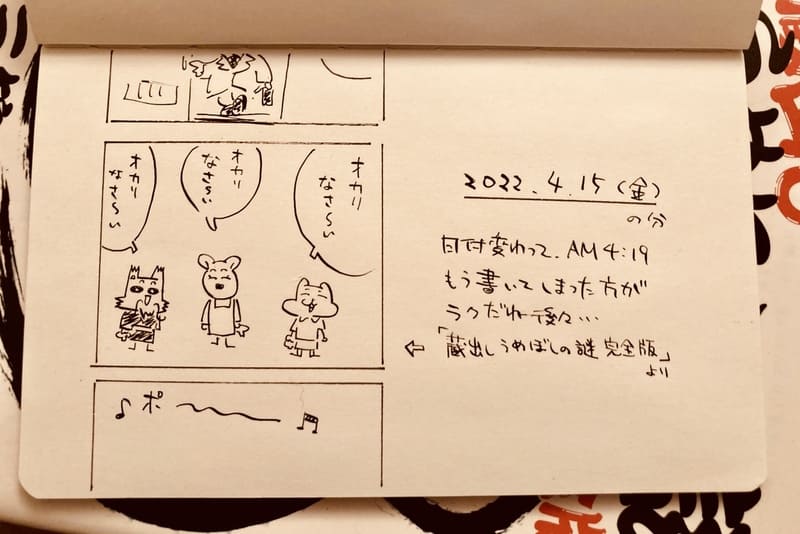 オカリ
なさ〜い
オカリ
なさ〜い
オカリ
なさ〜い
♪ポ〜〜〜♬
2022.4.15(金)
の分
日付変わって、AM4:19
もう書いてしまった方が
ラクだねー後々…
⇦「蔵出しうめぼしの謎 完全版」
より